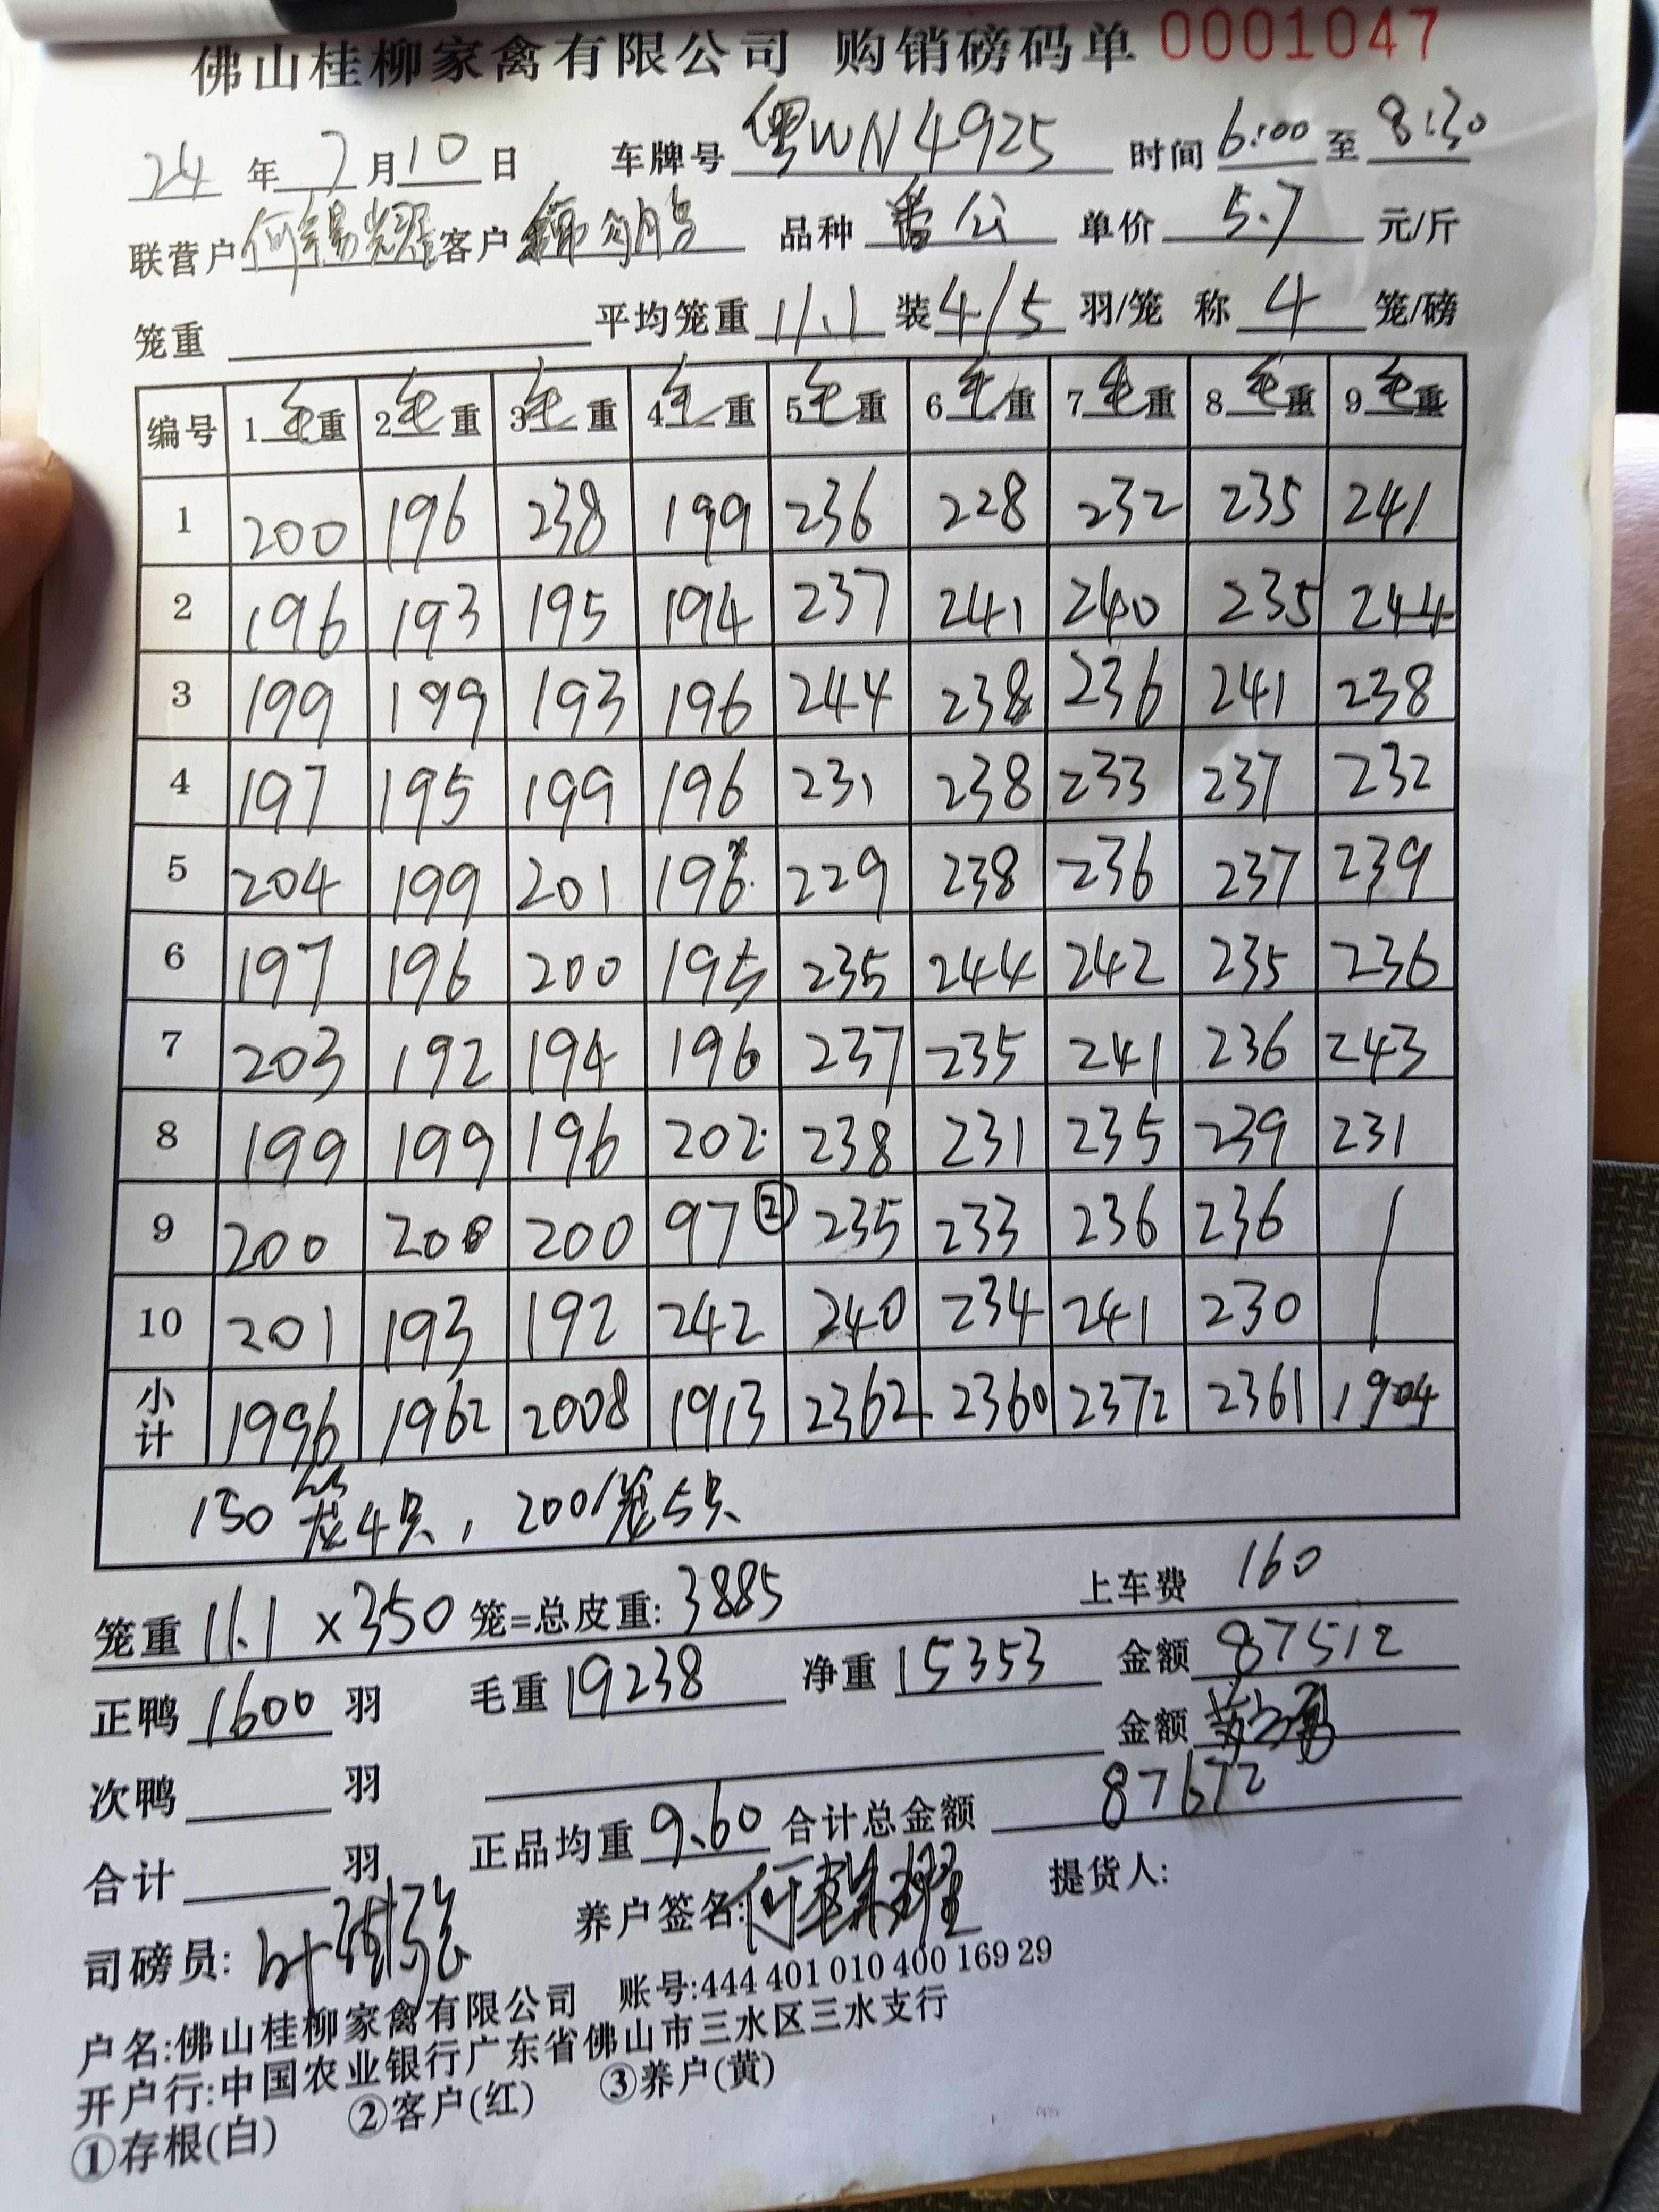 佛山桂柳家禽有限公司 购销磅码单 0001047
24 年 7 月 10 日 车牌号 粤WN4925 时间 6:00 至 8:30
联营户 何锡 客户 品种 番公 单价 5.7 元/斤
笼重 平均笼重 11.1 装 4/5 羽/笼 称 4 笼/磅
编号 1毛重 2毛重 3毛重 4毛重 5毛重 6毛重 7毛重 8毛重 9毛重
1 200 196 238 199 236 228 232 235 241
2 196 193 195 194 237 241 240 235 244
3 199 199 193 196 244 238 236 241 238
4 197 195 199 196 231 238 233 237 232
5 204 199 201 196 229 238 236 237 239
6 197 196 200 195 235 244 242 235 236
7 203 192 194 196 237 235 241 236 243
8 199 199 196 202 238 231 235 239 231
9 200 200 200 97② 235 233 236 236 /
10 201 193 192 242 240 234 241 230 /
小计 1996 1962 2008 1913 2362 2360 2372 2361 1904
150笼4只，200笼5只
笼重 11.1 x 350 笼=总皮重: 3885 上车费 160
正鸭 1600 羽 毛重 19238 净重 15353 金额 87512
次鸭 羽 金额
合计 羽 正品均重 9.60 合计总金额 87672
司磅员: 叶 养户签名: 何 提货人:
户名:佛山桂柳家禽有限公司 账号:444 401 010 400 169 29
开户行:中国农业银行广东省佛山市三水区三水支行
①存根(白) ②客户(红) ③养户(黄)